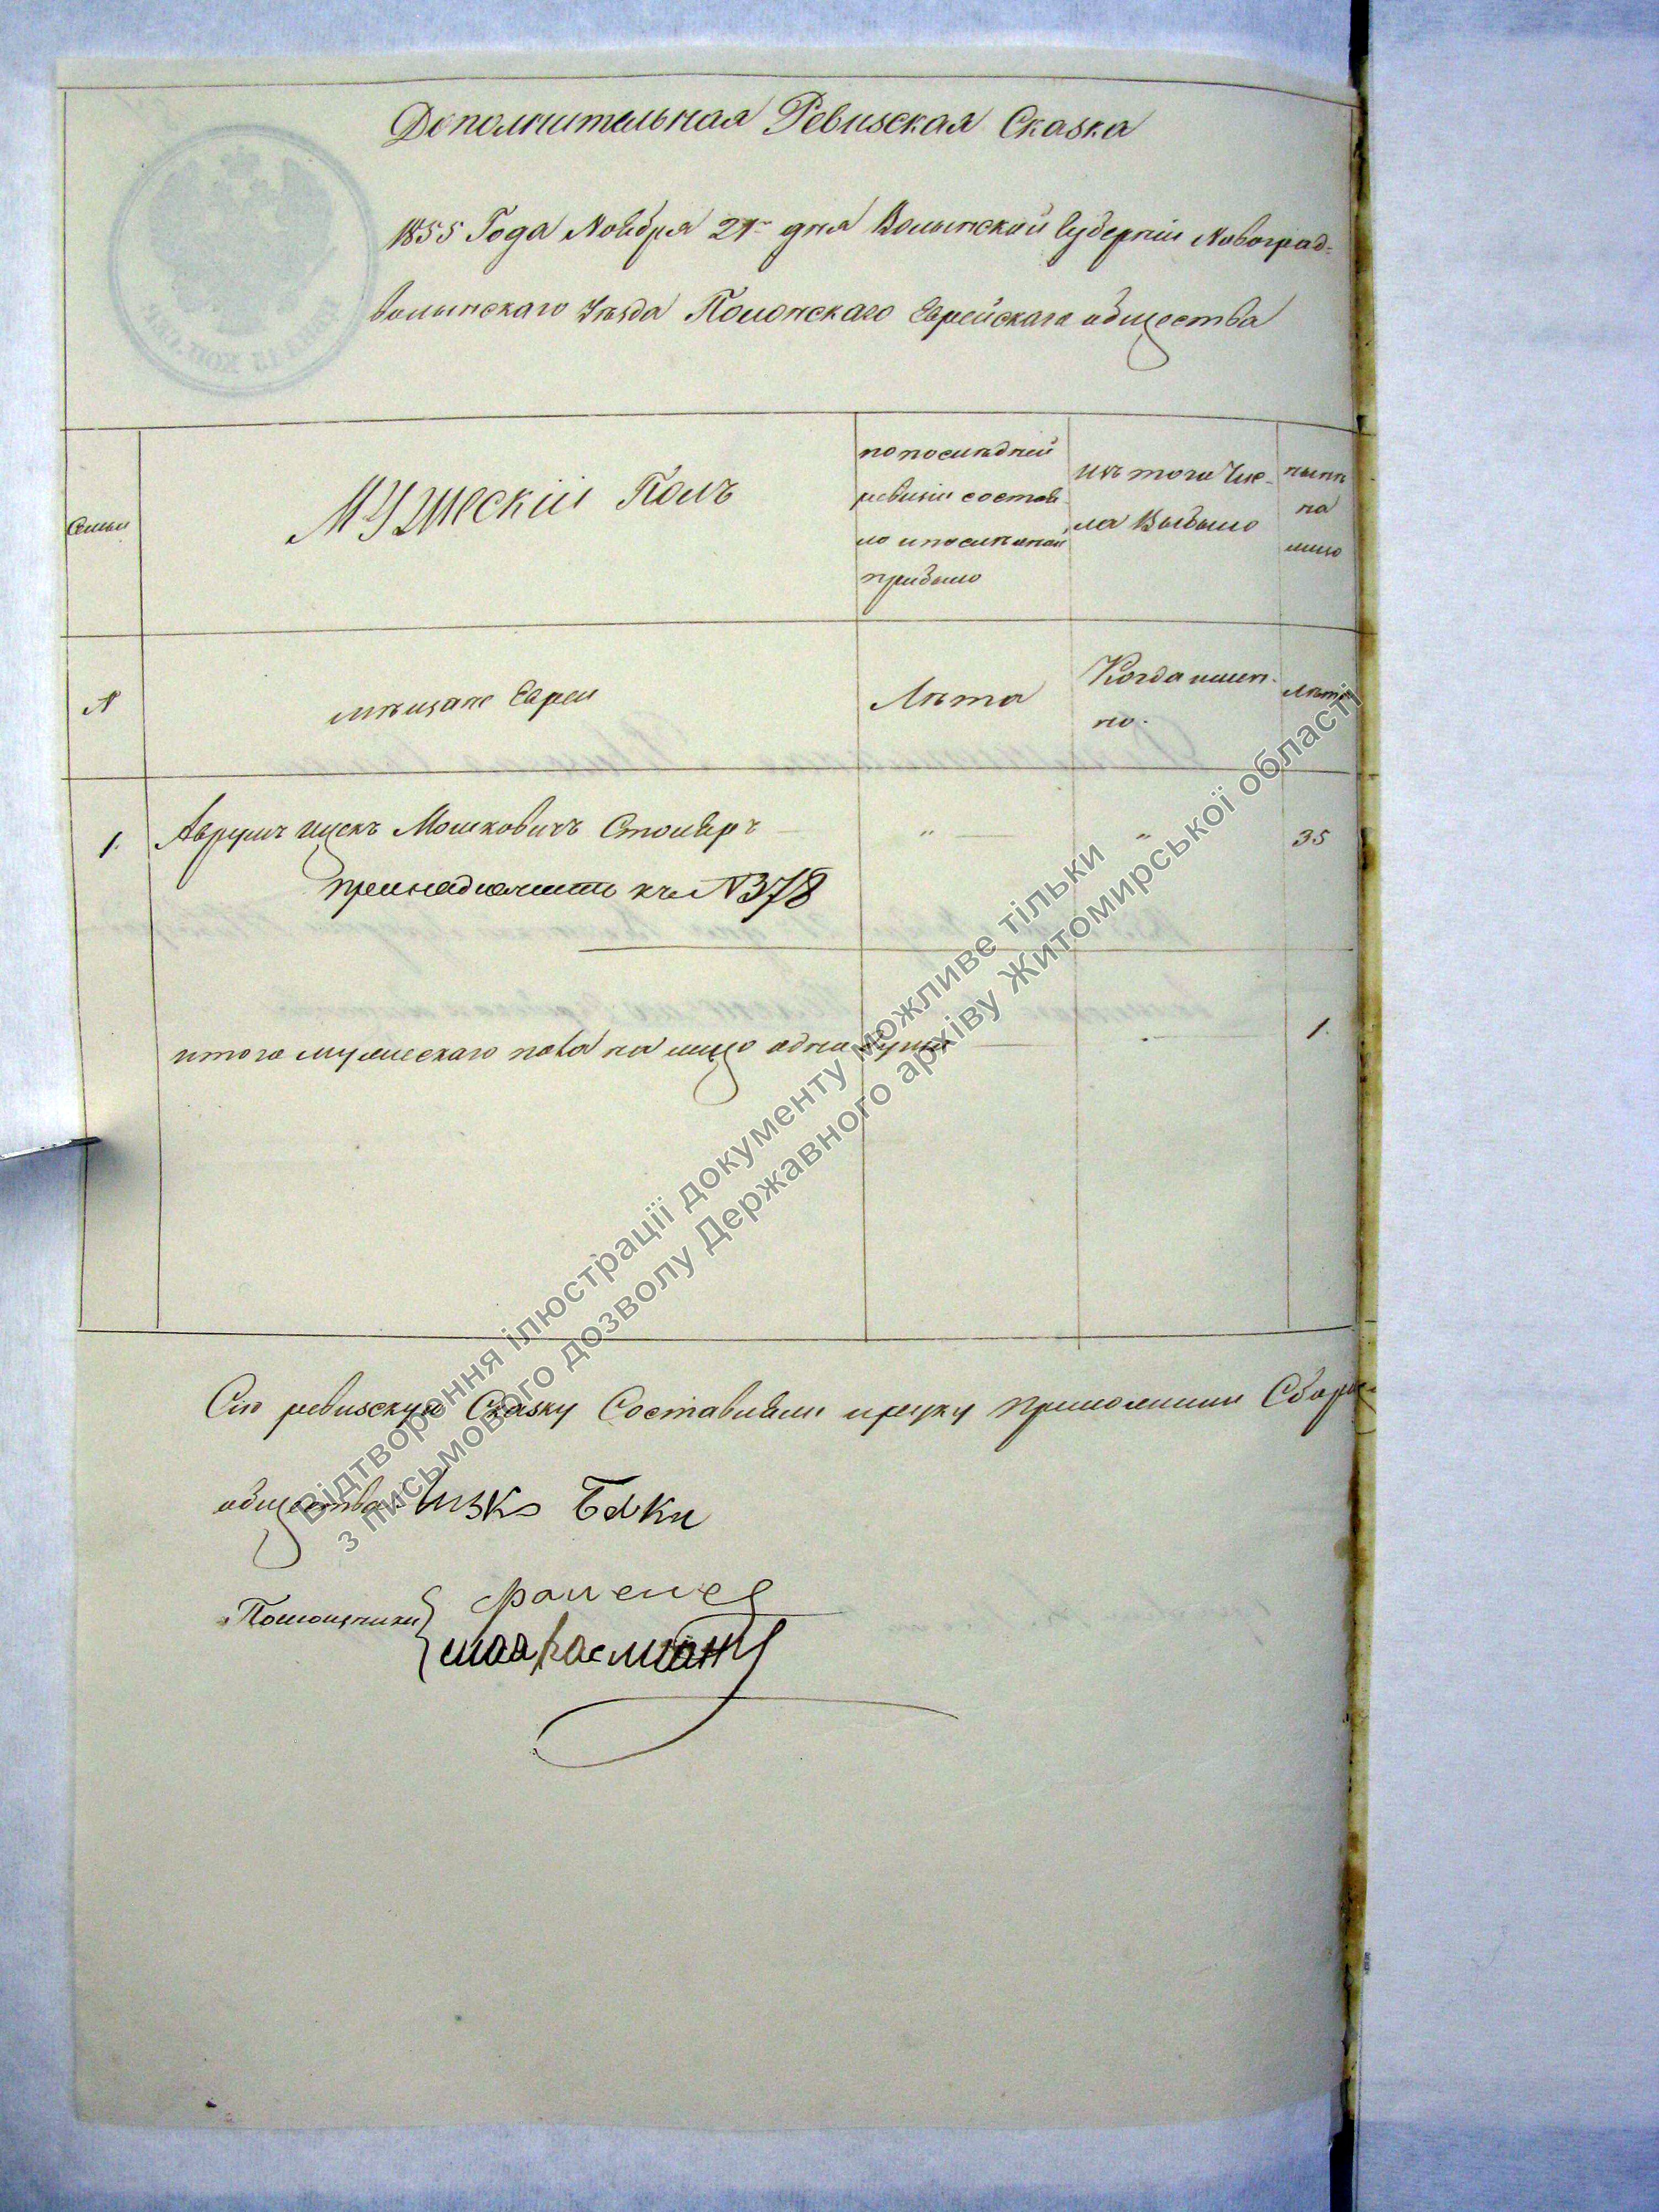 Дополнительная Ревизская Сказка
1855 Года Ноября 21го дня Волынской Губерніи Новоград-
волынскаго Уѣзда Полонскаго Еврейскаго общества
Семьи
Мужескій Полъ
по послѣдней
ревизіи состоя-
ло и после оной
прибыло
Изъ того Чис-
ла Выбыло
нынѣ
на
лицо
№
мѣщане Евреи
Лѣта
Когда имен-
но.
Лѣта
1. Аврумъ Ицекъ Мошковичъ Столяръ — " — " 35
принадлежитъ къ № 378
итого мужескаго пола на лицо одна душа — 1.
Сію ревизскую Сказку Составили и руку приложили
общества
Помощники
Відтворення ілюстрації документу можливе тільки
з письмового дозволу Державного архіву Житомирської області